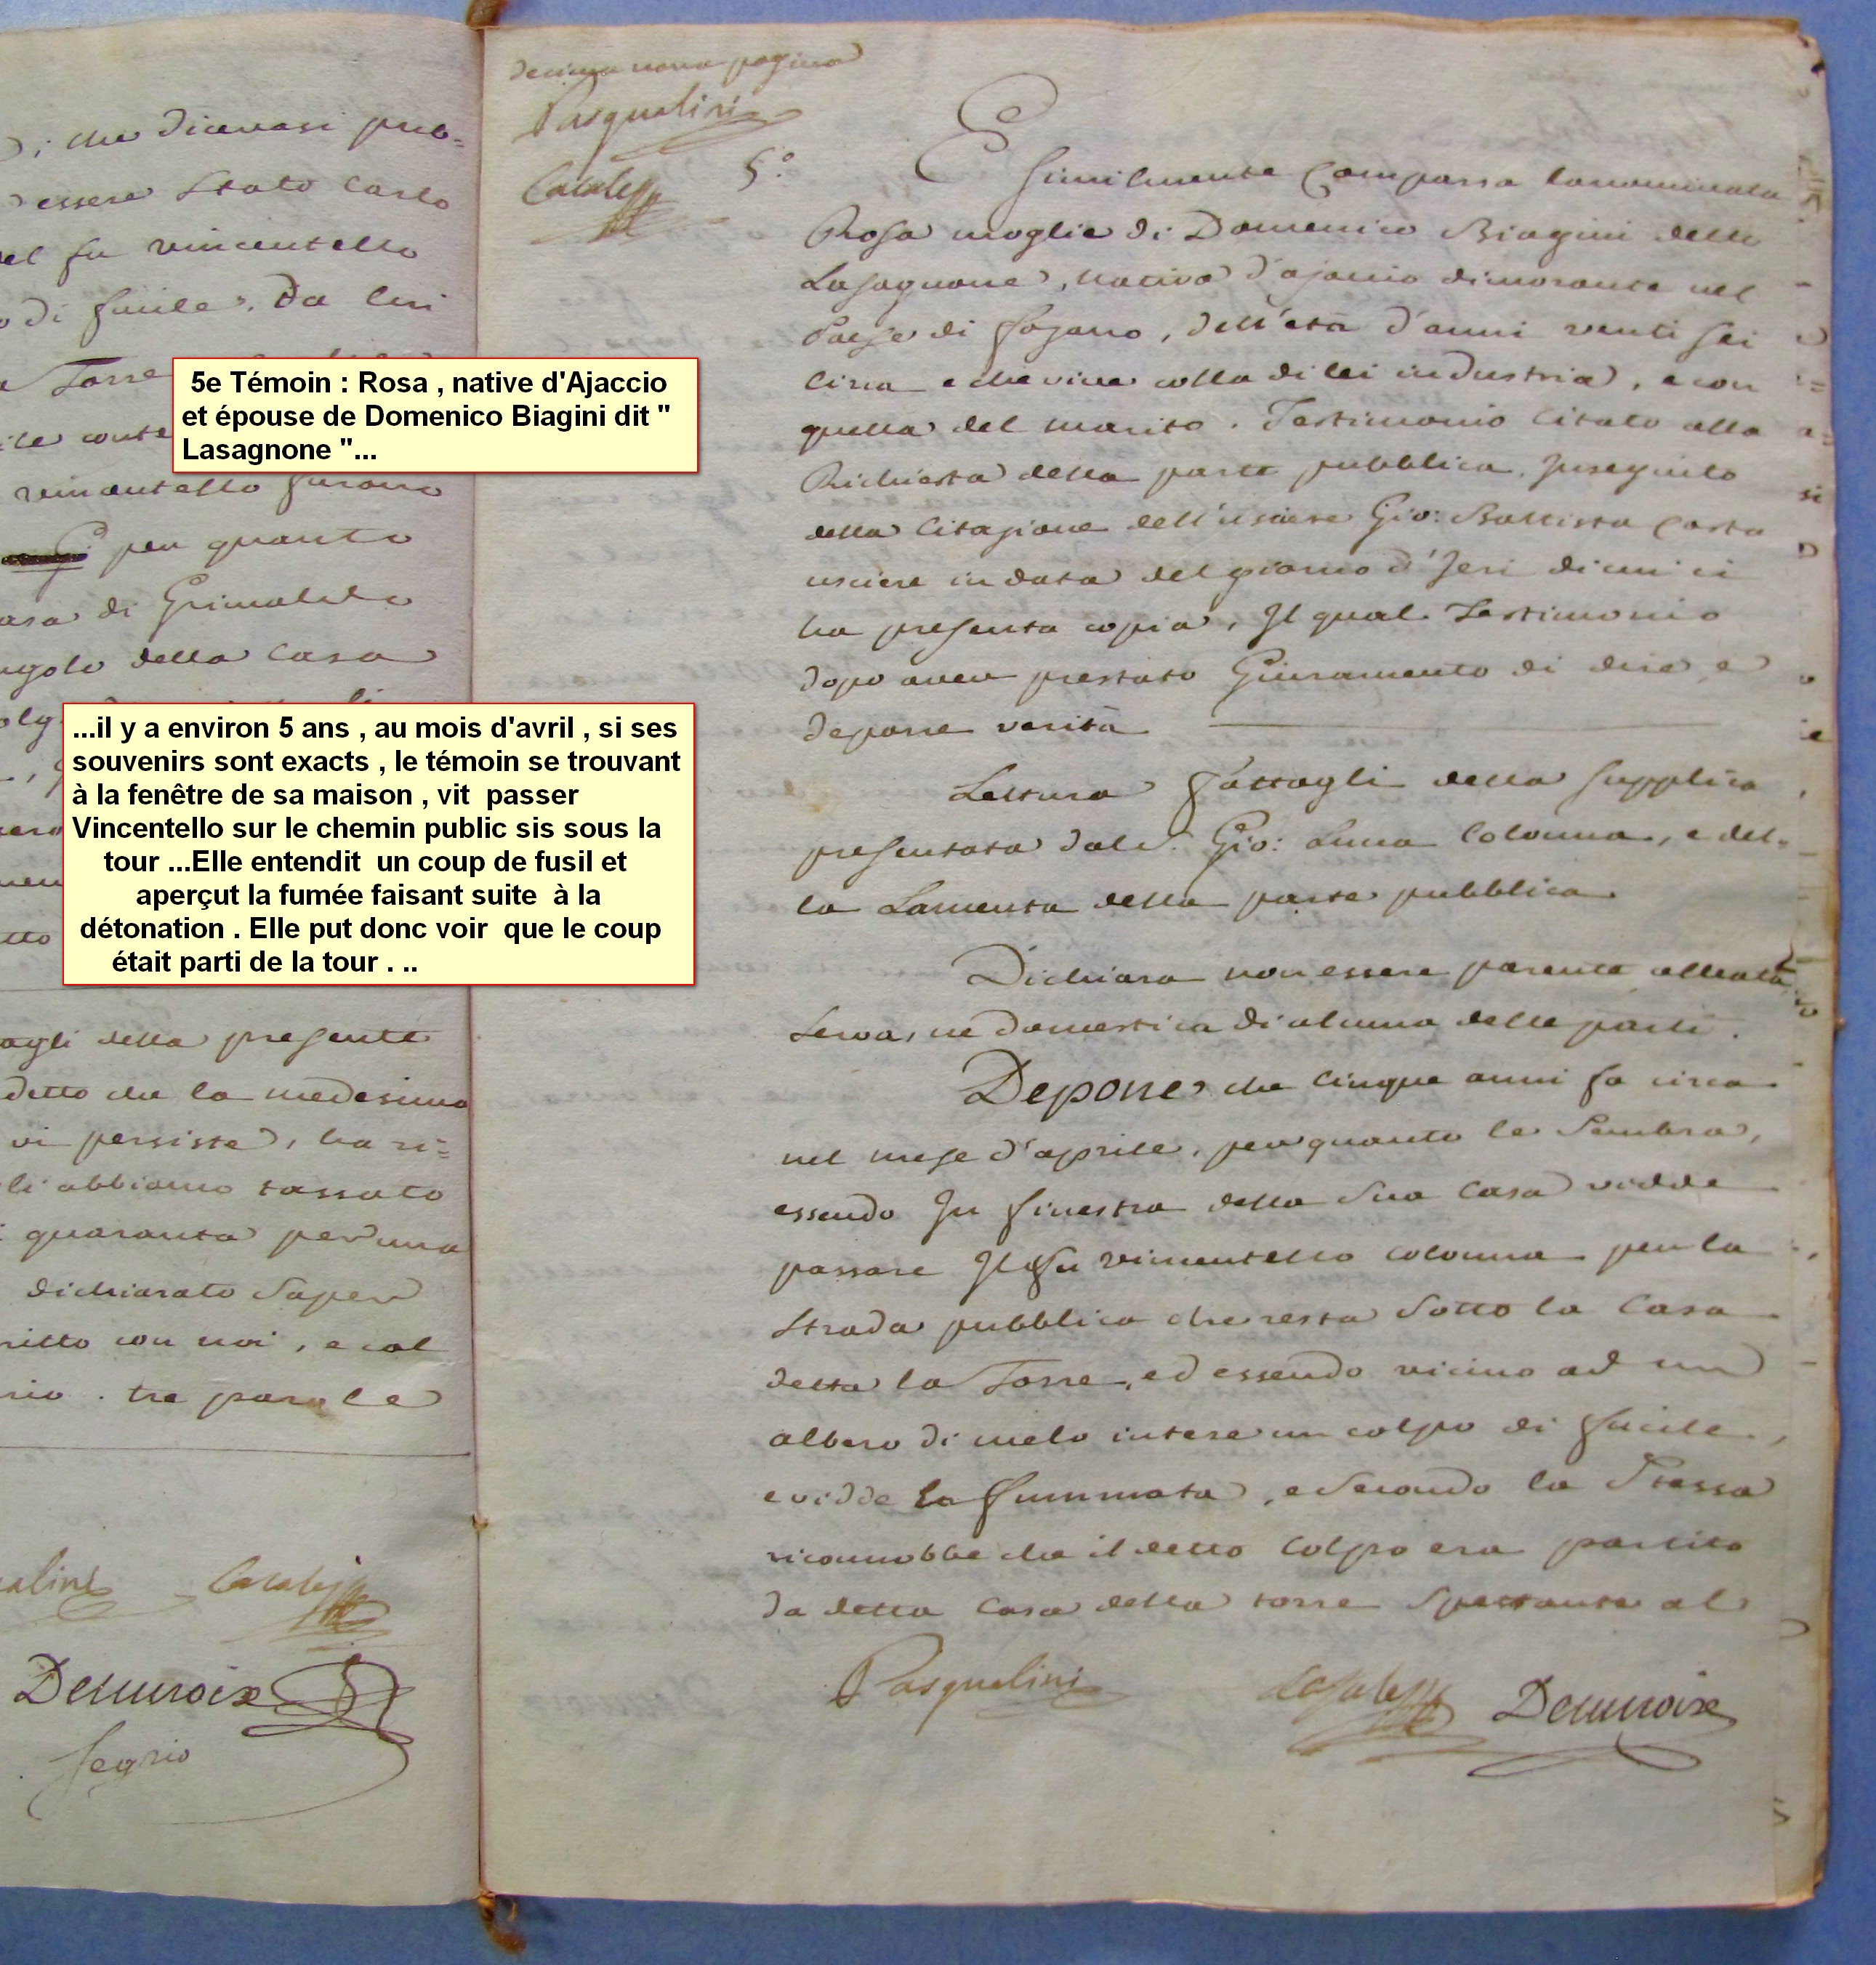 di che dicevasi pub=
essere Stato Carlo
el fu vincentello
di fucile. Da lui
Torre
vincentello furono
per quanto
asa di Grimaldo
angolo della Casa
agli della presente
detto che la medesima
vi persiste, ha ri=
li abbiamo tassato
quaranta per una
dichiarato Saper
ritto con noi, e col
rio. tre parole
alini Casale
Segrio
5e Témoin : Rosa , native d'Ajaccio
et épouse de Domenico Biagini dit "
Lasagnone "...
...il y a environ 5 ans , au mois d'avril , si ses
souvenirs sont exacts , le témoin se trouvant
à la fenêtre de sa maison , vit passer
Vincentello sur le chemin public sis sous la
tour ...Elle entendit un coup de fusil et
aperçut la fumée faisant suite à la
détonation . Elle put donc voir que le coup
était parti de la tour . ..
decima nona pagina
Pasqualini
5.°
E Similmente Comparsa la nominata
Rosa moglie di Domenico Biagini detto
Lasagnone, nativa d'ajaccio dimorante nel
Paese di , dell'età d'anni venti sei
circa e che vive colla di lei industria, e con
quella del marito. Testimonio citato alla
Richiesta della parte pubblica. Inseguito
della Citazione dell'usciere Gio: Battista Costa
usciere in data del giorno d'Jeri di cui ci
ha presenta copia, Il qual Testimonio
dopo aver prestato Giuramento di dire, e
deporre verità
Lettura fattagli della Supplica
presentata dal Gio: Luca Colonna, e del=
la Lamenta della parte pubblica
Dichiara non essere parente alleata
Serva, ne domestica di alcuna delle parti.
Depone che Cinque anni fa circa
nel mese d'aprile, per quanto le Sembra,
essendo In finestra della Sua Casa vidde
passare Il fu vincentello Colonna per la
Strada pubblica che resta Sotto la Casa
detta la Torre, ed essendo vicino ad un
albero di melo intese un colpo di fucile,
e vidde la fummata, e Secondo la Stessa
riconnobbe che il detto Colpo era partito
da detta Casa della torre Spettante al
Pasqualini